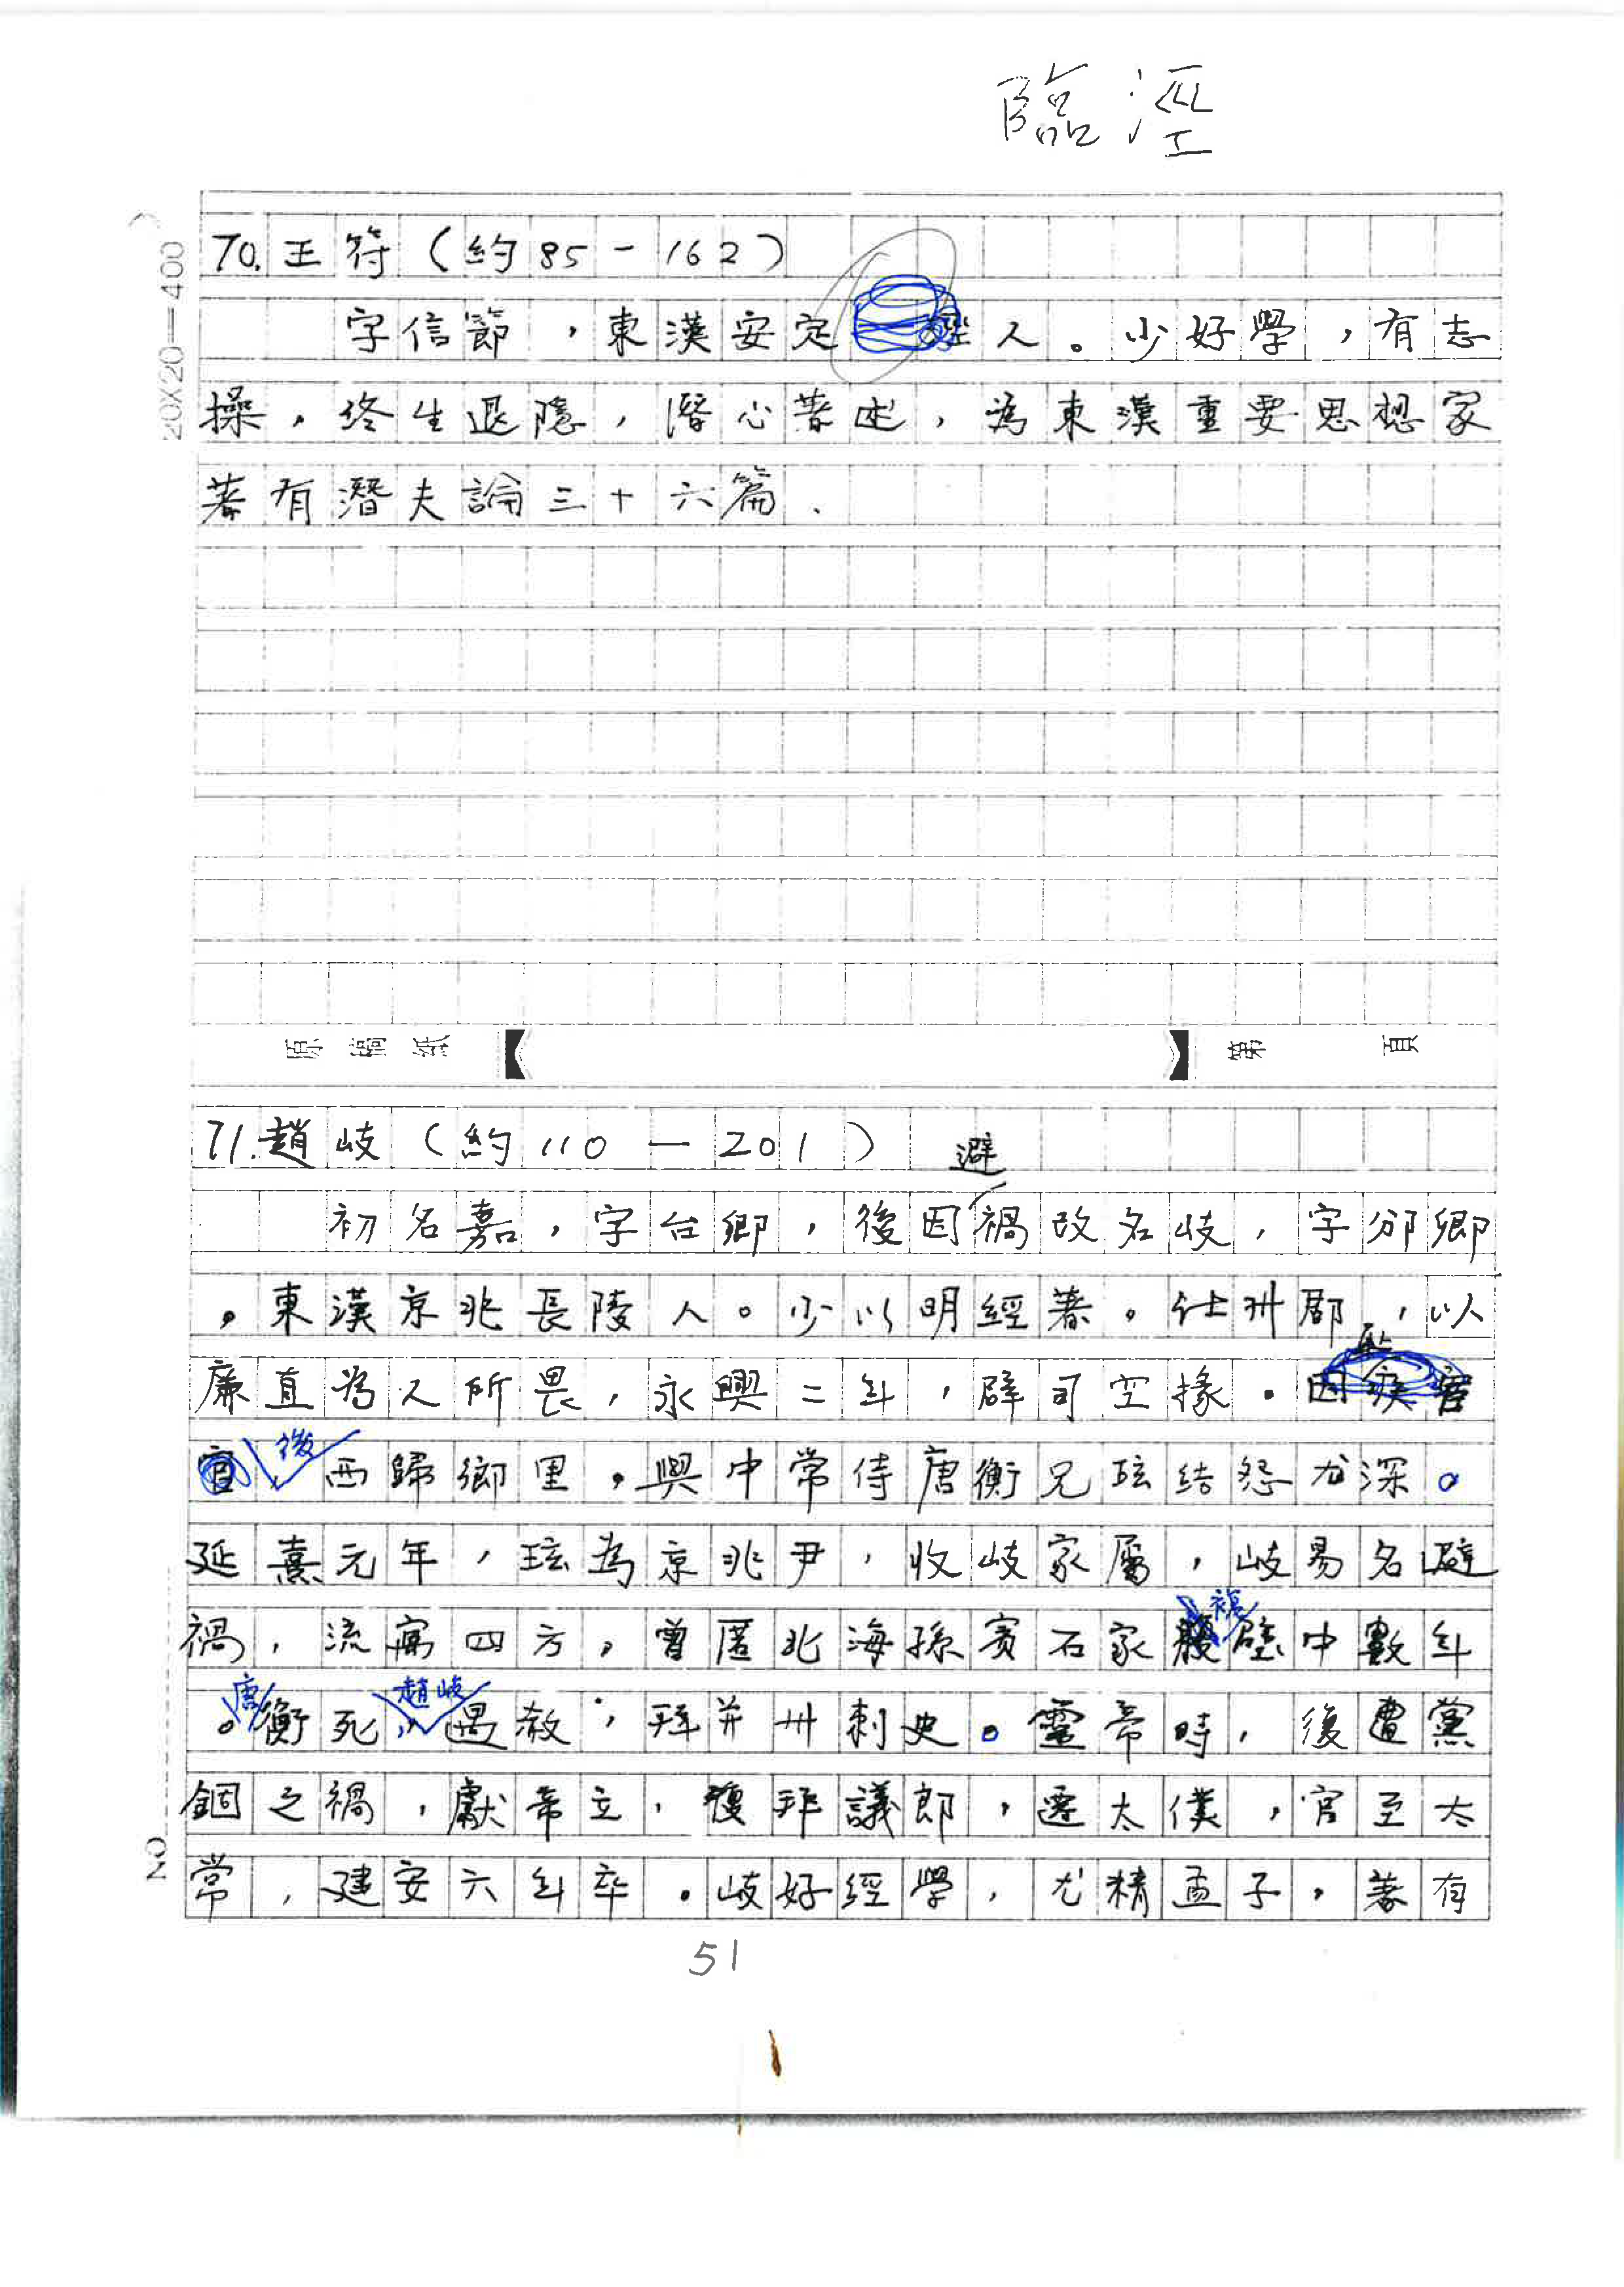 臨涇
70.王符（約85-162）
字信節，東漢安定人。少好學，有志
操，終生退隱，潛心著述，為東漢重要思想家
著有潛夫論三十六篇.
20X20=400
原稿紙 第 頁
71.趙岐（約110—201）
避
初名嘉，字台卿，後因禍改名岐，字邠卿
。東漢京兆長陵人。少以明經著。仕州郡，以
廉直為人所畏，永興二年，辟司空掾。
後西歸鄉里，與中常侍唐衡兄玹結怨尤深。
延熹元年，玹為京兆尹，收岐家屬，岐易名避
禍，流寓四方，曾匿北海孫賓石家複壁中數年
。唐衡死，趙岐遇赦，拜并州刺史。靈帝時，復遭黨
錮之禍，獻帝立，復拜議郎，遷太僕，官至太
常，建安六年卒。岐好經學，尤精孟子，著有
NO
51